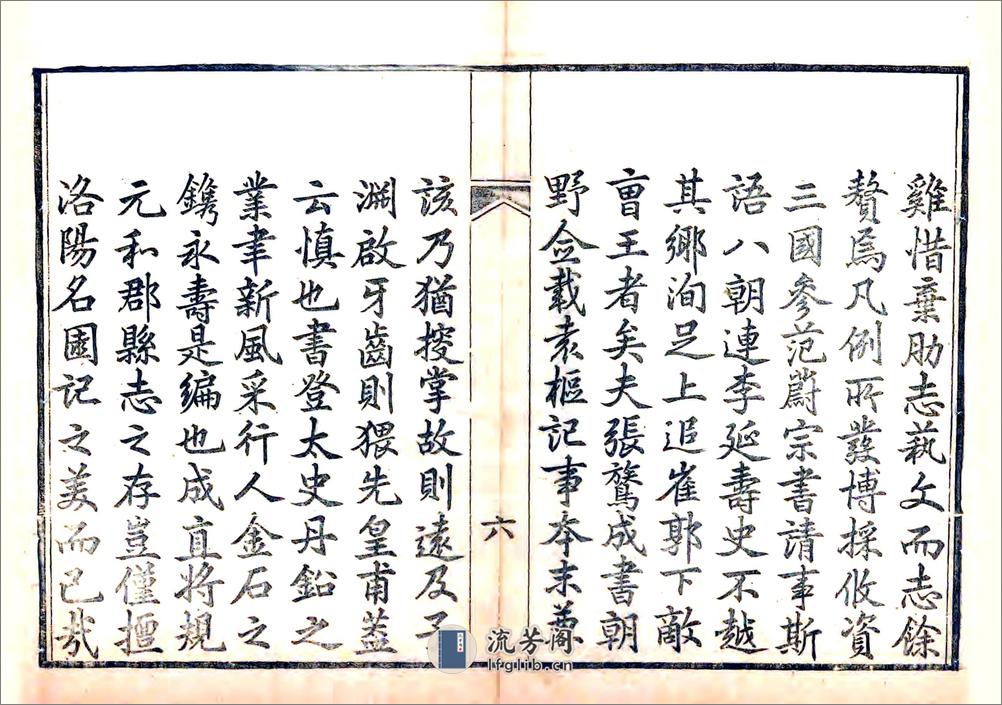 雞惜棄肋志藝文而志餘
贅焉凡例所發博採攸資
三國參范蔚宗書請事斯
語八朝連李延壽史不越
其鄉洵足上追崔郭下敵
曹王者矣夫張鷟成書朝
野僉載袁樞記事本末兼
六
該乃猶控掌故則遠及子
淵啟牙齒則猥先皇甫蓋
云慎也書登太史丹鉛之
業聿新風采行人金石之
鐫永壽是編也成直將規
元和郡縣志之存豈僅㨿
洛陽名園記之美而已哉
流芳阁
lfglib.cn